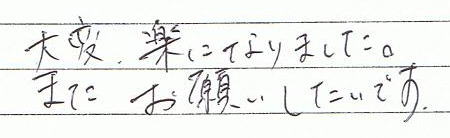 大変、楽になりました。
また お願いしたいです。